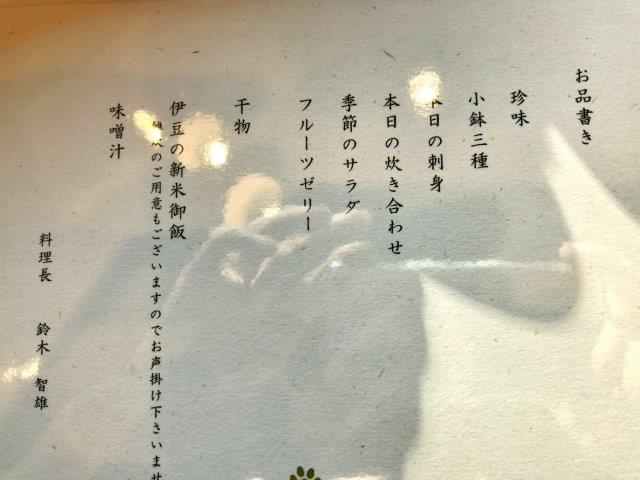 お品書き
珍味
小鉢三種
本日の刺身
本日の炊き合わせ
季節のサラダ
フルーツゼリー
干物
伊豆の新米御飯
のご用意もございますのでお声掛け下さいませ
味噌汁
料理長 鈴木 智雄